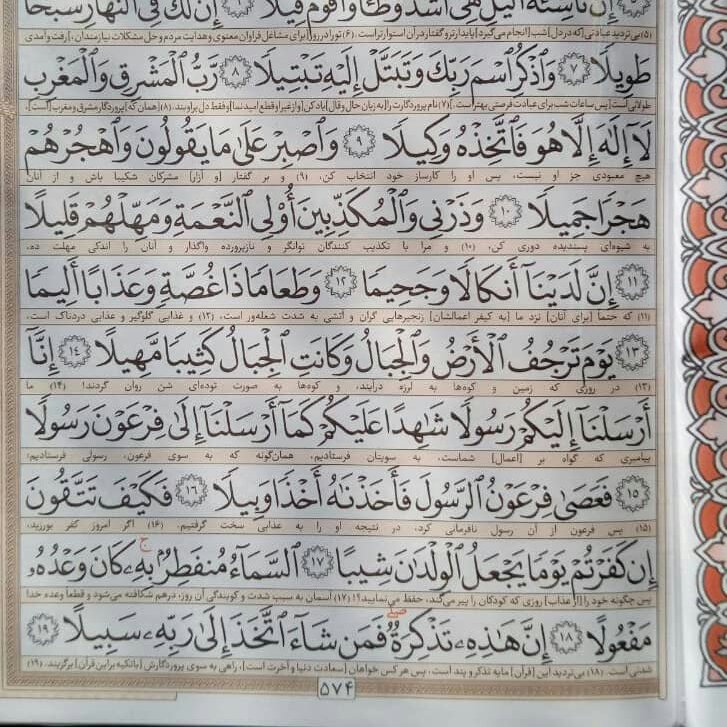 إِنَّ نَاشِئَةَ ٱلَّيۡلِ هِيَ أَشَدُّ وَطۡـٔٗا وَأَقۡوَمُ قِيلًا ۶ إِنَّ لَكَ فِي ٱلنَّهَارِ سَبۡحٗا
(۵) بی‌تردید عبادتی [که در دل] شب [انجام می‌گیرد] پایدارتر و گفتار در آن استوارتر است. (۶) تو را در روز [برای مشاغل فراوان معنوی و هدایت مردم و حل مشکلات نیازمندان،] رفت و آمدی
طَوِيلٗا ۷ وَٱذۡكُرِ ٱسۡمَ رَبِّكَ وَتَبَتَّلۡ إِلَيۡهِ تَبۡتِيلٗا ۸ رَّبُّ ٱلۡمَشۡرِقِ وَٱلۡمَغۡرِبِ
طولانی است [پس ساعات شب برای عبادت فرصتی بهتر است]. (۷) نام پروردگارت را [به زبان حال و قال] یاد کن [و از غیر او قطع امید نما] و فقط دل بر او بند. (۸) [همان که] پروردگار مشرق و مغرب [است]،
لَآ إِلَٰهَ إِلَّا هُوَ فَٱتَّخِذۡهُ وَكِيلٗا ۹ وَٱصۡبِرۡ عَلَىٰ مَا يَقُولُونَ وَٱهۡجُرۡهُمۡ
هیچ معبودی جز او نیست، پس او را کارساز خود انتخاب کن. (۹) و بر گفتار [و آزار] مشرکان شکیبا باش و از آنان
هَجۡرٗا جَمِيلٗا ۱۰ وَذَرۡنِي وَٱلۡمُكَذِّبِينَ أُوْلِي ٱلنَّعۡمَةِ وَمَهِّلۡهُمۡ قَلِيلًا
به شیوه‌ای پسندیده دوری کن، (۱۰) و مرا با تکذیب کنندگان توانگر و نازپرورده واگذار و آنان را اندکی مهلت ده،
۱۱ إِنَّ لَدَيۡنَآ أَنكَالٗا وَجَحِيمٗا ۱۲ وَطَعَامٗا ذَا غُصَّةٖ وَعَذَابًا أَلِيمٗا
(۱۱) که حتماً [برای آنان] نزد ما [به کیفر اعمالشان] زنجیرهایی گران و آتشی به شدت شعله‌ور است، (۱۲) و غذایی گلوگیر و عذابی دردناک است،
۱۳ يَوۡمَ تَرۡجُفُ ٱلۡأَرۡضُ وَٱلۡجِبَالُ وَكَانَتِ ٱلۡجِبَالُ كَثِيبٗا مَّهِيلًا ۱۴ إِنَّآ
(۱۳) در روزی که زمین و کوه‌ها به لرزه درآیند، و کوه‌ها به صورت توده‌ای شن روان گردند! (۱۴) ما
أَرۡسَلۡنَآ إِلَيۡكُمۡ رَسُولٗا شَٰهِدًا عَلَيۡكُمۡ كَمَآ أَرۡسَلۡنَآ إِلَىٰ فِرۡعَوۡنَ رَسُولٗا
پیامبری که گواه بر [اعمال] شماست، به سویتان فرستادیم، همان‌گونه که به سوی فرعون، رسولی فرستادیم؛
۱۵ فَعَصَىٰ فِرۡعَوۡنُ ٱلرَّسُولَ فَأَخَذۡنَٰهُ أَخۡذٗا وَبِيلٗا ۱۶ فَكَيۡفَ تَتَّقُونَ
(۱۵) پس فرعون از آن رسول نافرمانی کرد، در نتیجه او را به عذابی سخت گرفتیم. (۱۶) اگر امروز کفر بورزید،
إِن كَفَرۡتُمۡ يَوۡمٗا يَجۡعَلُ ٱلۡوِلۡدَٰنَ شِيبًا ۱۷ ٱلسَّمَآءُ مُنفَطِرُۢ بِهِۦۚ كَانَ وَعۡدُهُۥ
پس چگونه خود را [از عذاب] روزی که کودکان را پیر می‌کند، حفظ می‌نمایید؟! (۱۷) آسمان به سبب شدت و کوبندگی آن روز، درهم شکافته می‌شود و قطعاً وعده خدا
مَفۡعُولًا ۱۸ إِنَّ هَٰذِهِۦ تَذۡكِرَةٞۖ فَمَن شَآءَ ٱتَّخَذَ إِلَىٰ رَبِّهِۦ سَبِيلًا ۱۹
شدنی است. (۱۸) بی‌تردید این [قرآن] مایه تذکر و پند است، پس هر کس خواهان [سعادت دنیا و آخرت است]، راهی به سوی پروردگارش [با تکیه بر این قرآن] برگزیند. (۱۹)
۵۷۴